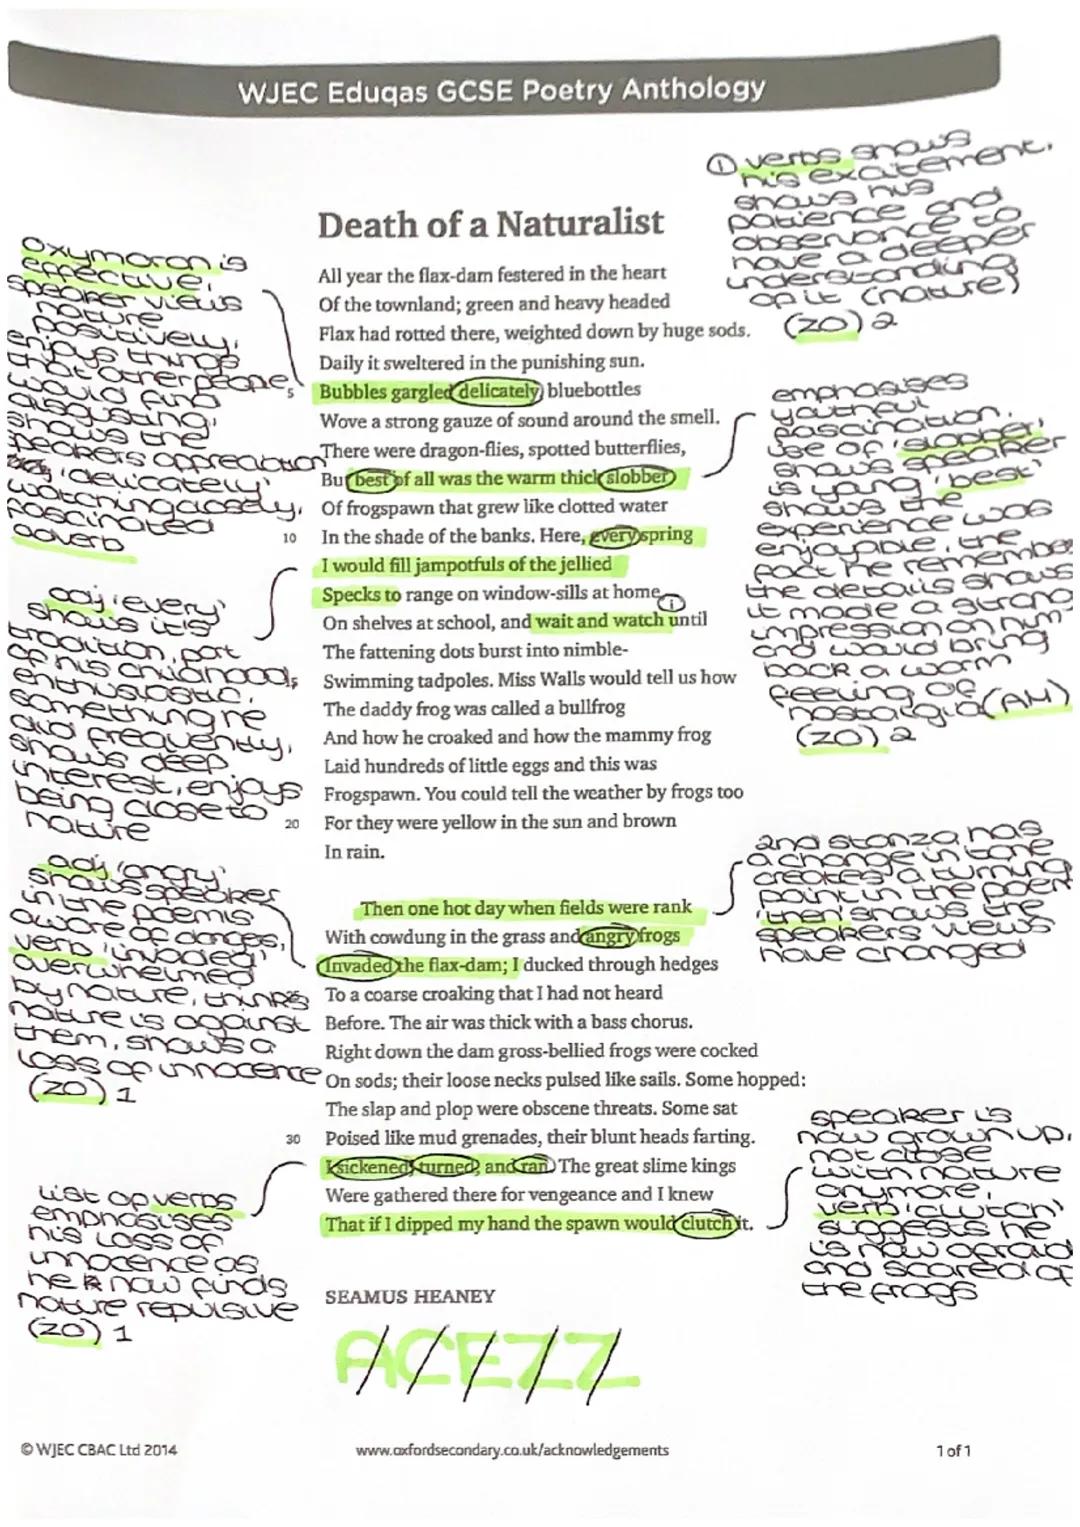 WJEC Eduqas GCSE Poetry Anthology
① verbs shows
his excitement.
shows his
patience and
observance to
have a deeper
understanding
of it (nature)
(ZO) 2
Death of a Naturalist
oxymoron is
effective,
speaker views
nature
positively,
enjoys things
that other people
would find
disgusting,
shows the
speakers appreciation
'delicately'
watching closely,
fascinated
adverb
All year the flax-dam festered in the heart
Of the townland; green and heavy headed
Flax had rotted there, weighted down by huge sods.
Daily it sweltered in the punishing sun.
5 Bubbles gargled delicately, bluebottles
Wove a strong gauze of sound around the smell.
There were dragon-flies, spotted butterflies,
But best of all was the warm thick slobber
Of frogspawn that grew like clotted water
10 In the shade of the banks. Here, every spring
I would fill jampotfuls of the jellied
Specks to range on window-sills at home,
On shelves at school, and wait and watch until
The fattening dots burst into nimble-
Swimming tadpoles. Miss Walls would tell us how
The daddy frog was called a bullfrog
And how he croaked and how the mammy frog
Laid hundreds of little eggs and this was
Frogspawn. You could tell the weather by frogs too
20 For they were yellow in the sun and brown
In rain.
emphasises
youthful
fascination.
use of 'slobber'
shows speaker
is young, 'best'
shows the
experience was
enjoyable, the
fact he remembers
the details shows
it made a strong
impression on him
and would bring
back a warm
feeling of
nostalgia (AH)
(ZO) 2
adj 'every'
shows it's
tradition, part
of his childhood,
enthusiastic,
something he
did frequently,
shows deep
interest, enjoys
being close to
nature
adj 'angry'
shows speaker
in the poem is
aware of danges,
verb 'invaded'
overwhelmed
by nature, thinks
nature is against
them, shows a
loss of innocence
(ZO) 1
2nd stanza has
a change in tone
creates a turning
point in the poem
'then' shows the
speakers views
have changed
Then one hot day when fields were rank
With cowdung in the grass and angry frogs
Invaded the flax-dam; I ducked through hedges
To a coarse croaking that I had not heard
Before. The air was thick with a bass chorus.
Right down the dam gross-bellied frogs were cocked
On sods; their loose necks pulsed like sails. Some hopped:
The slap and plop were obscene threats. Some sat
30 Poised like mud grenades, their blunt heads farting.
I sickened, turned, and ran. The great slime kings
Were gathered there for vengeance and I knew
That if I dipped my hand the spawn would clutch it.
list of verbs
emphasises
his loss of
innocence as
he now finds
nature repulsive
(ZO) 1
speaker is
now grown up,
not close
with nature
anymore,
verb 'clutch'
suggests he
is now afraid
and scared of
the frogs
SEAMUS HEANEY
ACEZZ
© WJEC CBAC Ltd 2014
www.oxfordsecondary.co.uk/acknowledgements
1 of 1